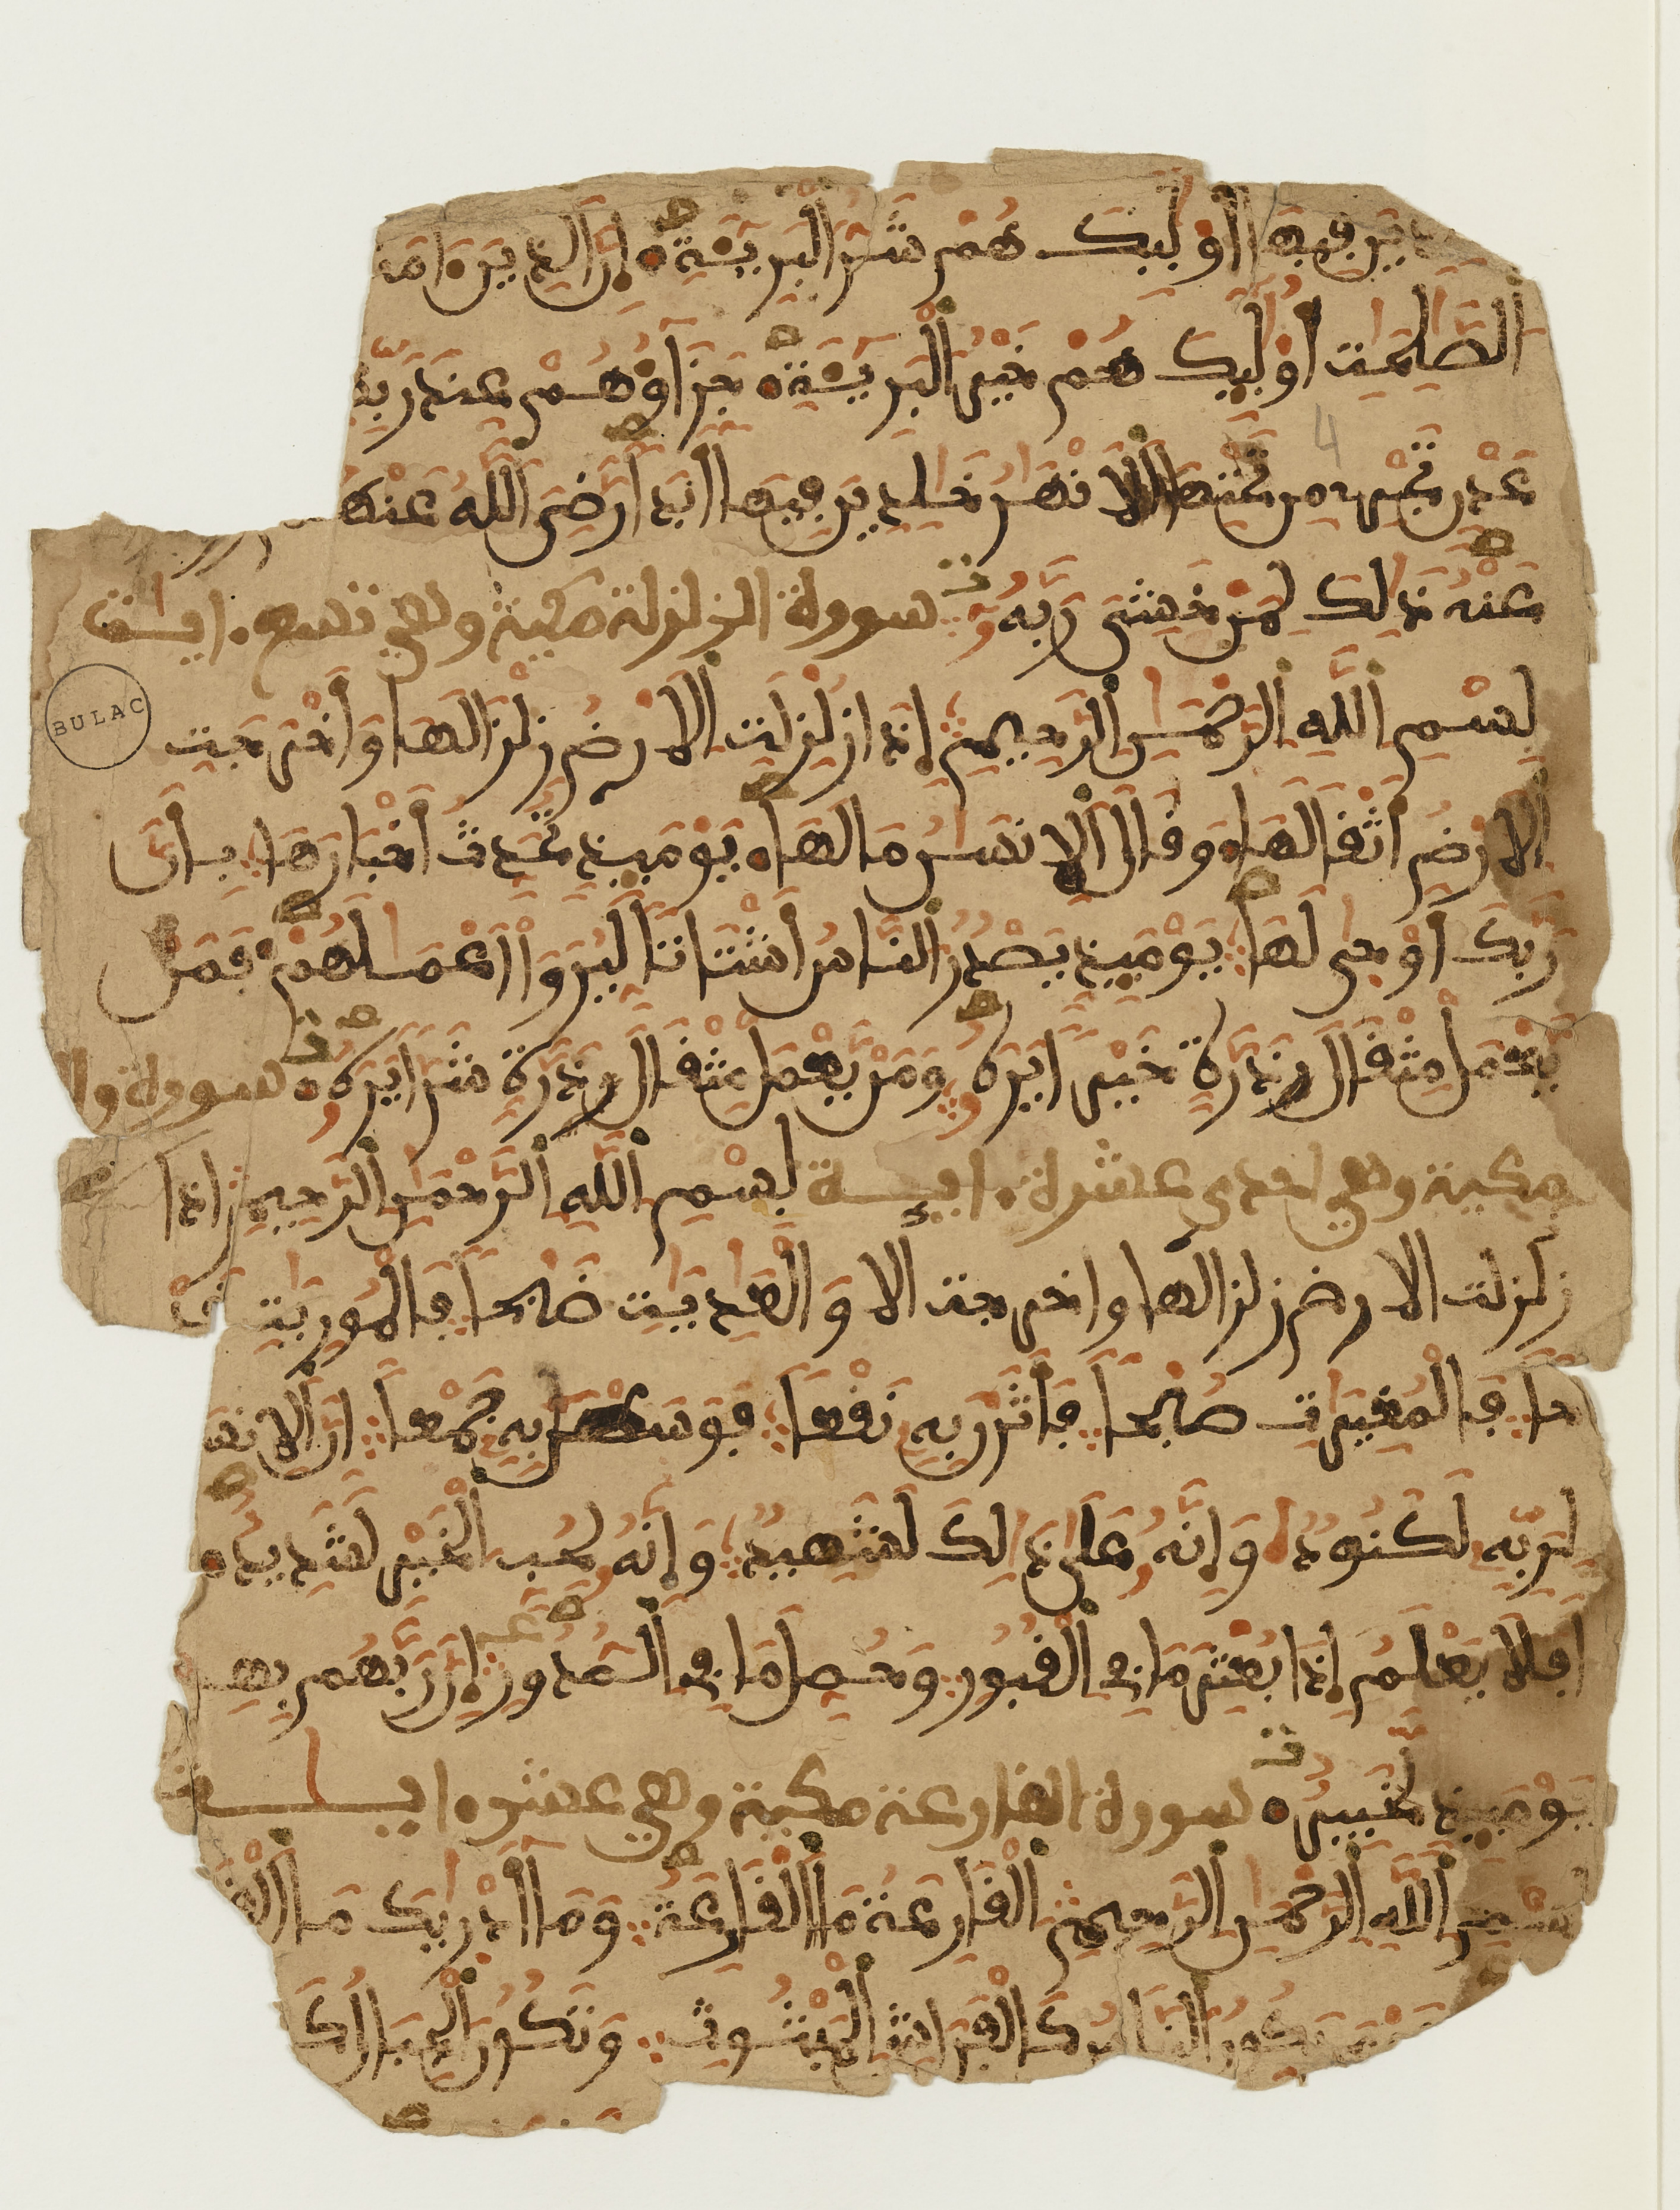 فيها أولبك هم شر البريئة ان الذين امنـ
الصلحت أولبك هم خير البريئة جزاؤهم عند ربـ
عدن تجرے من تحتها الانهر خلدين فيها ابدا رضي الله عنهـ
عنه ذالك لمن خشي ربه سورة الزلزلة مكية وهي تسع ايت
بسم الله الرحمن الرحيم إذا زلزلت الارض زلزالها وأخرجت
الارض أثقالها وقال الانسن مالها يومئذ تحدث أخبارها بأن
ربك أوحى لها يومئذ يصدر الناس أشتاتا ليروا أعملهم فمن
يعمل مثقال ذرة خيرا يره ومن يعمل مثقال ذرة شرا يره سورة والـ
مكية وهي احدى عشرة اية بسم الله الرحمن الرحيم اذا
زلزلت الارض زلزالها واخرجت الا والعديت ضبحا فالموريت قد
حا فالمغيرات صبحا فأثرن به نقعا فوسطن به جمعا ان الانسـ
لربه لكنود وإنه على ذالك لشهيد وإنه لحب الخير لشديد
افلا يعلم إذا بعثر ما في القبور وحصل ما في الصدور إن ربهم بهـ
يومئذ لخبير سورة القارعة مكية وهي عشر ايت
بسم الله الرحمن الرحيم القارعة ما القارعة وما أدريك ما القـ
يكون الناس كالفراش المبثوث وتكون الجبال كا
4
BULAC